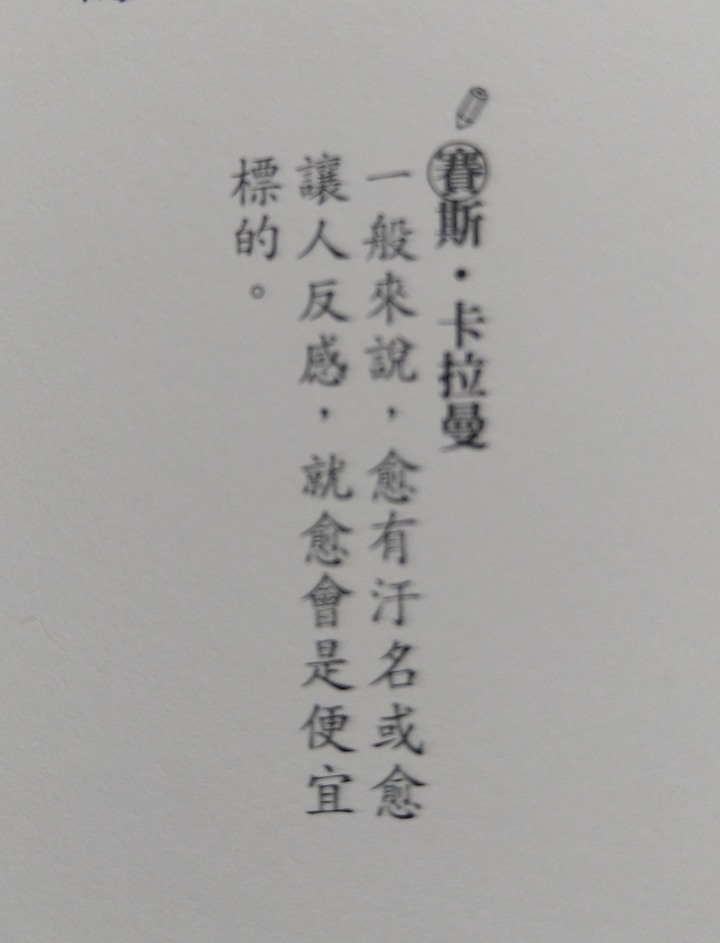 賽斯・卡拉曼
一般來說，愈有汙名或愈
讓人反感，就愈會是便宜
標的。